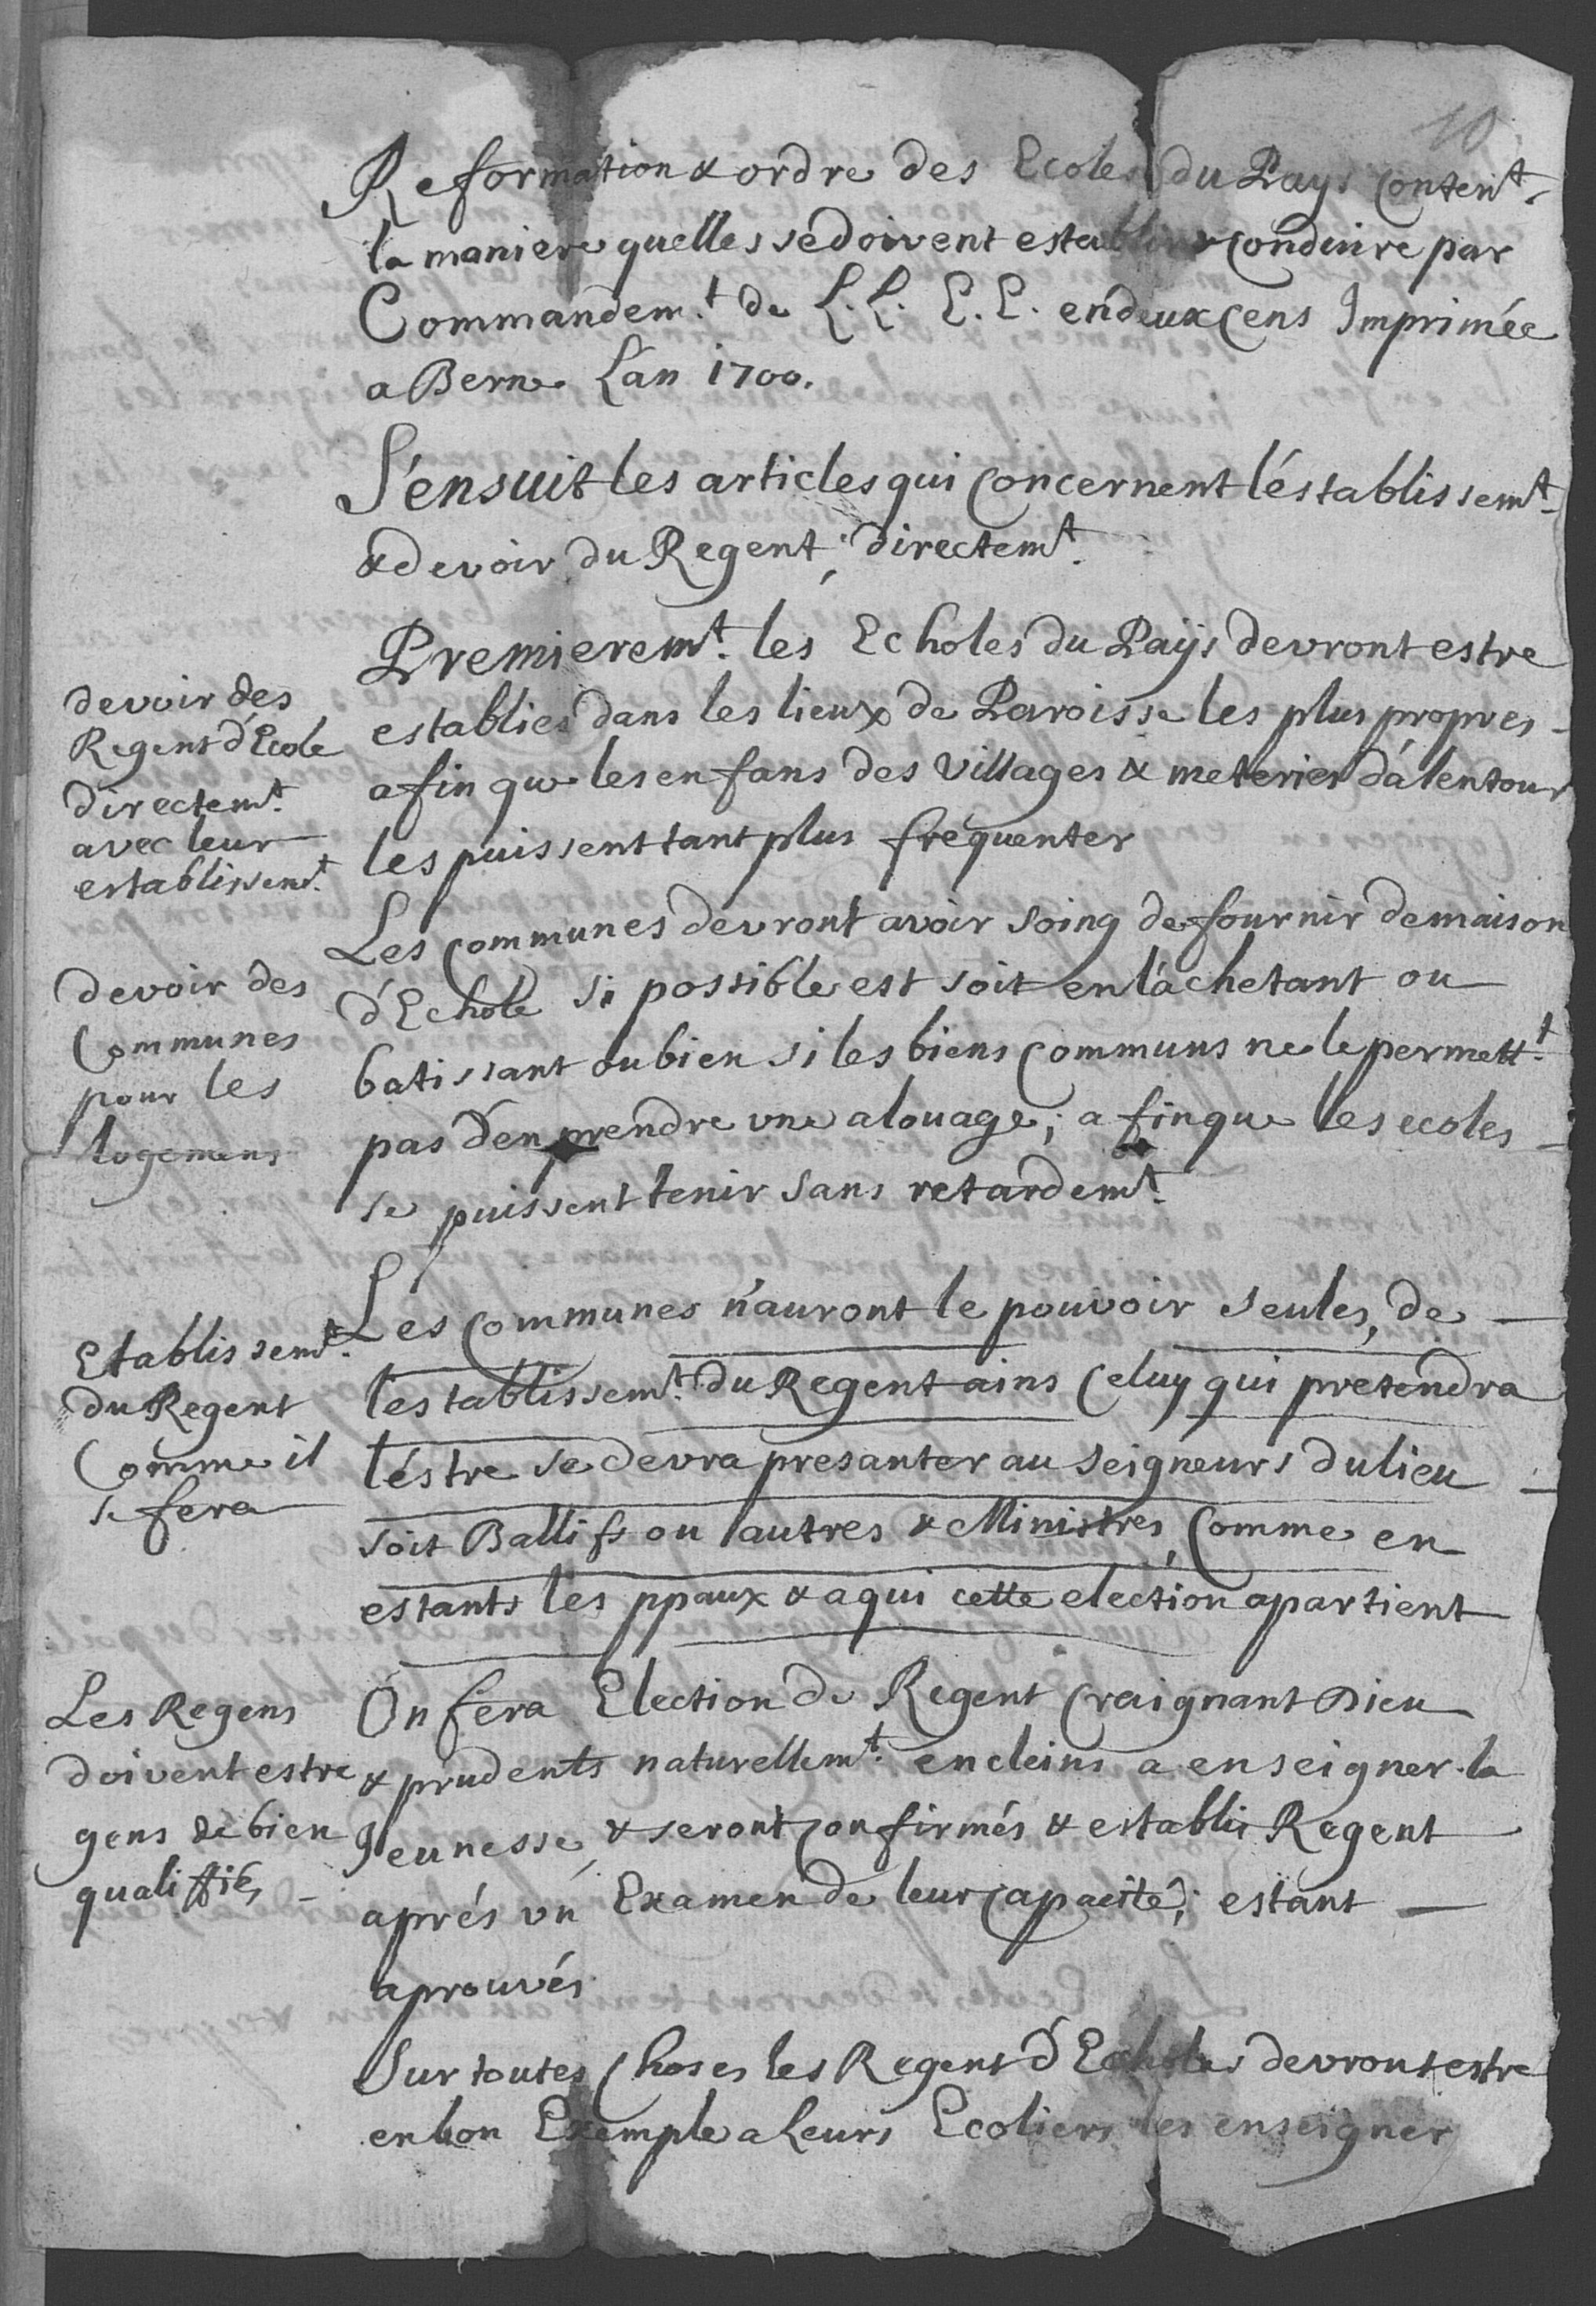 10
Reformation & ordre des Ecoles du Pays Conten.t
la maniere quelles se doivent establir & Conduire par
Commandem.t de L.L. E.E. en deux Cens Imprimée
a Berne L'an 1700.
S'ensuit les articles qui Concernent l'éstablissem.t
& devoir du Regent, directem.t
devoir des
Regent d'Ecole
directem.t
avec leur
establissem.t
Premierem.t les Echoles du Païjs devront estre
establies dans les lieux de Paroisse les plus propres
afin que les enfans des Villages & meteries d'alentour
les puissent tant plus fréquenter
devoir des
Communes
pour les
logemens
Les Communes devront avoir soing de fournir de maison
d'Echole si possible est soit en l'achetant ou
batissant ou bien si les biens Communs ne le permett.t
pas d'en prendre une a louage; a fin que les ecoles
se puissent tenir sans retardem.t
Etablissem.t
du Regent
Comme il
se fera
Les Communes n'auront le pouvoir seules, de
l'establissem.t du Regent ains Celuy qui pretendra
l'éstre se devra presanter au Seigneurs du lieu
soit Ballifs ou autres & Ministres, Comme en
estants les ppaux & a qui cette election apartient
Les Regens
doivent estre
gens de bien
qualiffiés
On fera Election de Regent Craignant Dieu
& prudents naturellem.t encleins a enseigner la
Jeunesse, & seront Confirmés & establis Regent
aprés vn Examen de leur Capacité; estant
aprouvés
Sur toutes Choses les Regent d'Echoles devront estre
en bon Exemple a Leurs Ecoliers les enseigner